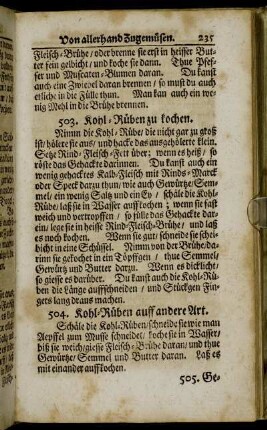 Von allerhand Zugemüsen. 235
Fleisch-Brühe / oder brenne sie erst in heisser But-
ter fein gelbicht / und koche sie dann. Thue Pfef-
fer und Muscaten-Blumen daran. Du kanst
auch eine Zwiebel daran brennen / so must du auch
etliche in die Fülle thun. Man kan auch ein we-
nig Mehl in die Brühe brennen.
503. Kohl-Rüben zu kochen.
Nimm die Kohl-Rübe / die nicht gar zu groß
ist / hölere sie aus / und hacke das ausgehölerte klein.
Setze Rind-Fleisch-Fett über; wenn es heiß / so
röste das Gehackte darinnen. Du kanst auch ein
wenig gehacktes Kalb-Fleisch mit Rinds-Marck
oder Speck darzu thun / wie auch Gewürtz / Sem-
mel / ein wenig Saltz und ein Ey / schäle die Kohl-
Rübe / laß sie in Wasser auffkochen; wenn sie fast
weich und vertropffen / so fülle das Gehackte dar-
ein / lege sie in heisse Rind-Fleisch-Brühe / und laß
es noch kochen. Wenn sie gut / schneide sie schö-
bicht in eine Schüssel. Nimm von der Brühe / da-
rinn sie gekochet in ein Töpffgen / thue Semmel /
Gewürtz und Butter darzu. Wenn es dicklicht /
so giesse es darüber. Du kanst auch die Kohl-Rü-
ben die Länge auffschneiden / und Stückgen Fin-
gers lang draus machen.
504. Kohl-Rüben auff andere Art.
Schäle die Kohl-Rüben / schneide sie wie man
Aepffel zum Musse schneidet / koche sie in Wasser /
biß sie weich / giesse Fleisch-Brühe daran / und thue
Gewürtze / Semmel und Butter daran. Laß es
mit einander auffkochen.
505. Ge-